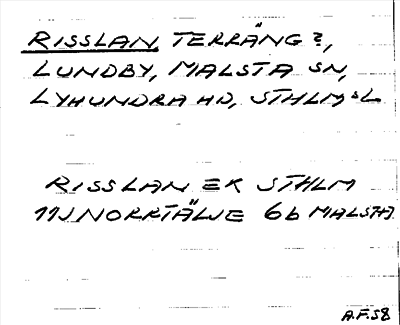 RISSLAN TERRÄNG?,
LUNDBY, MALSTA SN,
LYHUNDRA HD, STHLMSL
RISSLAN EK STHLM
11J NORRTÄLJE 6b MALSTA
A.F.58